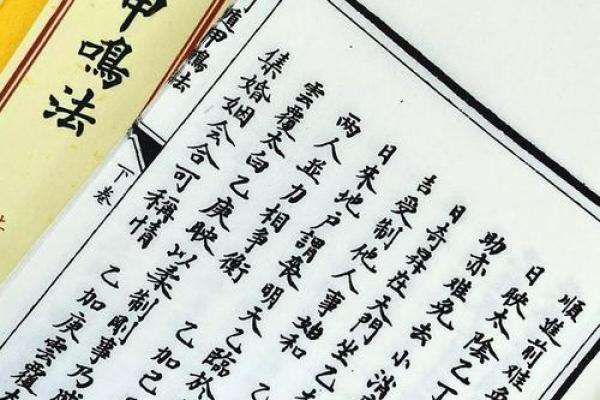 順進前難
日映太陰乙丁
助亦雖免去小消
日奇
吉受制在天門坐乙
日來地戶謂喪明天乙臨於
兩人並力相爭衡乙加己
雲覆太白乙庚映以柔制剛事乃
集婚姻会合可稱情乙加庚雲覆
遁甲鳴法
下卷
甲鳴法